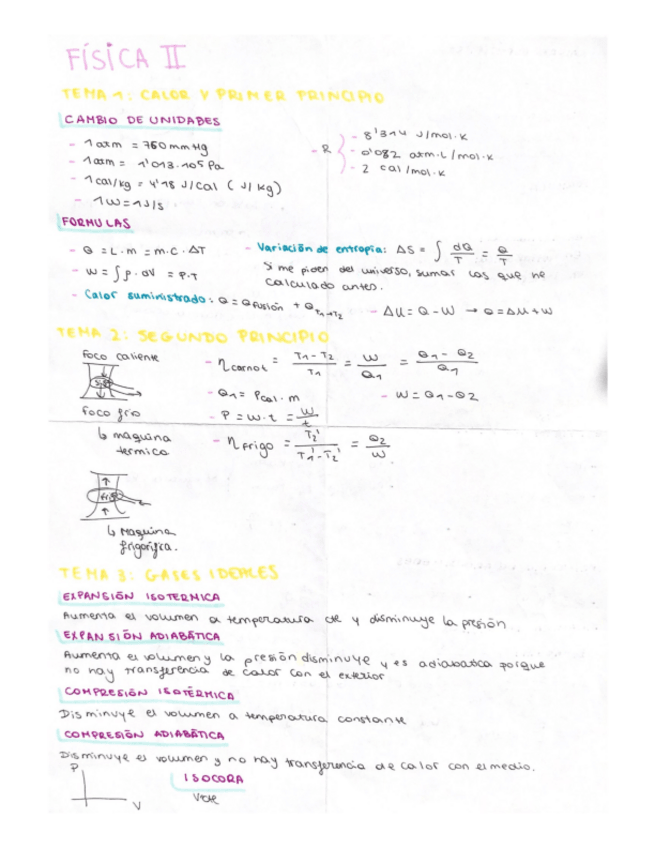 FÍSICA II
TEMA 1: CALOR Y PRIMER PRINCIPIO
CAMBIO DE UNIDADES
- 1 atm = 760 mmHg
- 1 atm = 1'013·105 Pa
- 1 cal/kg = 4'18 J/cal (J/kg)
- 1W = 1J/s
- R
- 8'314 J/mol·K
- 0'082 atm·L/mol·K
- 2 cal/mol·K
FORMULAS
- Q = L·m = m·C·ΔT
- W = ∫p·dV = P·T
- Calor suministrado: Q = Q fusión + Q T1→T2
- Variación de entropía: ΔS = ∫ dQ/T = Q/T
Si me piden del universo, sumar los que he
calculado antes.
- ΔU = Q - W → Q = ΔU + W
TEMA 2: SEGUNDO PRINCIPIO
Foco caliente
Foco frío
↳ maquina
termica
- η carnot = T1 - T2 / T1 = W / Q1 = Q1 - Q2 / Q1
- Q1 = Pcal · m
- W = Q1 - Q2
- P = W·t = W/t
- η frigo = T2' / T1' - T2' = Q2 / W
↳ Maquina
frigorífica.
TEMA 3: GASES IDEALES
EXPANSIÓN ISOTERMICA
Aumenta el volumen a temperatura cte y disminuye la presión
EXPANSIÓN ADIABÁTICA
Aumenta el volumen y la presión disminuye y es adiabática porque
no hay transferencia de calor con el exterior
COMPRESIÓN ISOTÉRMICA
Disminuye el volumen a temperatura constante
COMPRESIÓN ADIABÁTICA
Disminuye el volumen y no hay transferencia de calor con el medio.
P
V
ISOCORA
Vcte